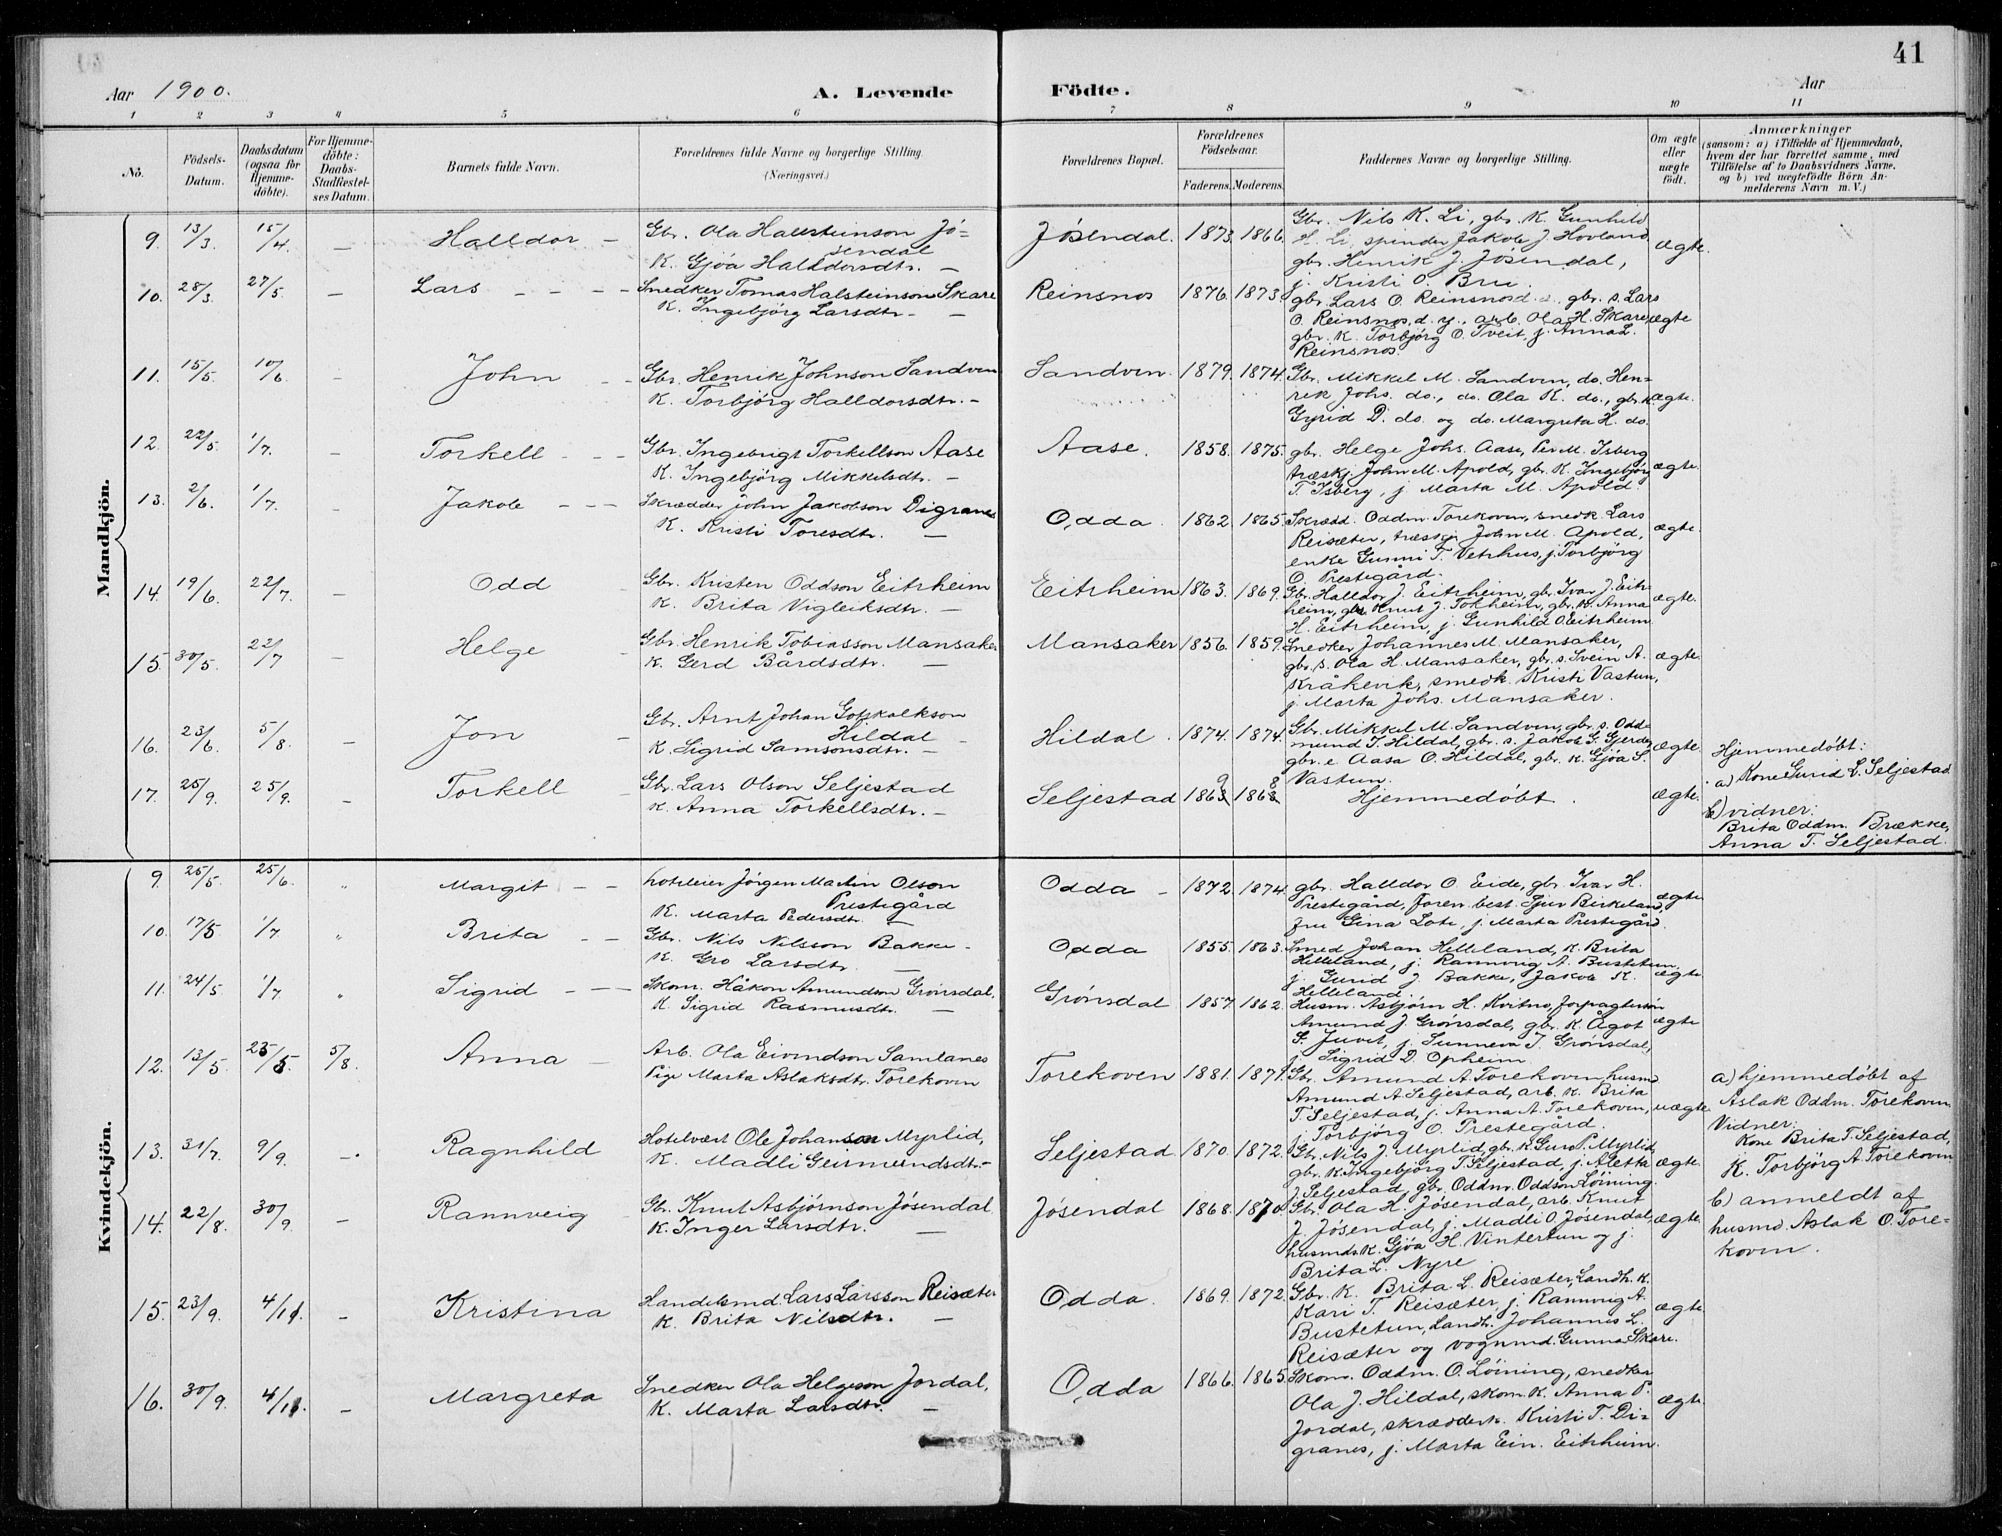 41
Aar 1900.
A. Levende Födte.
Aar
1 2 3 4 5 6 7 8 9 10 11
No.
Födsels-Datum.
Daabsdatum (ogsaa for Hjemme-döbte).
For Hjemme-döbte: Daabs-Stadfæstel-ses Datum.
Barnets fulde Navn.
Forældrenes fulde Navne og borgerlige Stilling. (Næringsvei.)
Forældrenes Bopæl.
Forældrenes Födselsaar.
Faderens. Moderens.
Faddernes Navne og borgerlige Stilling.
Om ægte eller uægte födt.
Anmærkninger
(saasom: a) i Tilfælde af Hjemmedaab, hvem der har forrettet samme, med Tilföielse af to Daabsvidners Navne. og b) ved uægtefödte Börn An-melderens Navn m. V.)
Mandkjön.
9. 13/3 15/4 – Halldor –
Gbr. Ola Hallsteinson Jö-
sendal
K. Gjöa Halldorsdtr. –
Jösendal. 1873. 1866.
Gbr. Nils K. Li, gbr. K. Gunhild
H. Li, spinder Jakob J. Hovland
gbr. Henrik J. Jösendal,
j. Kristi O. Bru.
ægte.
10. 28/3 27/5 – Lars – – –
Snedker Tomas Halsteinson Skare
K. Ingebjörg Larsdtr. –
Reinsnos 1876. 1873.
gbr. Lars O. Reinsnos d. e., gbr. s. Lars
O. Reinsnos, d. y., arb. Ola H. Skare
gbr. K. Torbjörg O. Tveit, j. Anna L.
Reinsnos.
ægte
11. 15/5 10/6 – John –
Gbr. Henrik Johnson Sandven
K. Torbjörg Halldorsdtr. –
Sandven. 1879. 1874.
Gbr. Mikkel M. Sandven, do. Hen=
rik Johs. do., do. Ola K. do., gbr. K.
Gyrid D. do. og do. Margreta H. do.
ægte.
12. 22/5 1/7. – Torkell – –
Gbr. Ingebrigt Torkellson Aase
K. Ingebjörg Mikkelsdtr. –
Aase. 1858. 1875.
gbr. Helge Johs. Aase, Per M. Isberg
træskj. John M. Apold, gbr. K. Ingebjörg
T. Isberg, j. Marta M. Apold.
ægte.
13. 2/6. 1/7. – Jakob – – –
Skrædder John Jakobson Digranes
K. Kristi Toresdtr. –
Odda. 1862. 1865.
Skrædd. Oddm. Torekoven, snedk. Lars
Reisæter, træskj. John M. Apold,
enke Gunni T. Vetrhus, j. Torbjörg
O. Prestegård.
ægte.
14. 19/6. 22/7. – Odd
Gbr. Kristen Oddson Eitrheim
K. Brita Vigleiksdtr. –
Eitrheim 1863. 1869.
Gbr. Halldor J. Eitrheim, gbr. Ivar J. Eitr-
heim, gbr. Knut J. Tokheim, gbr. K. Anna
H. Eitrheim, j. Gunhild O. Eitrheim
ægte.
15. 30/5. 22/7 – Helge
Gbr. Henrik Tobiasson Mansaker
K. Gerd Bårdsdtr. –
Mansaker 1856. 1859.
Snedker Johannes M. Mansaker,
gbr. s. Ola H. Mansaker, gbr. s. Svein A.
Kråkevik, smedk. Kristi Vastun,
j. Marta Johs. Mansaker.
ægte.
16. 23/6 5/8. – Jon –
Gbr. Arnt Johan Gotskalkson
Hildal –
K. Sigrid Samsonsdtr. –
Hildal. 1874. 1874.
Gbr. Mikkel M. Sandven, gbr. s. Odd=
mund T. Hildal, gbr. s. Jakob G. Gjerde,
gbr. e. Aasa O. Hildal, gbr. K. Gjöa S.
Vastun.
ægte.
17. 25/9. 25/9. – Torkell –
Gbr. Lars Olson Seljestad
K. Anna Torkellsdtr. –
Seljestad 1869 1868
Hjemmedöbt.
ægte.
Hjemmedöbt:
a) Kone Gurid L. Seljestad.
b) vidner:
Brita Oddm. Brække,
Anna T. Seljestad.
Kvindekjön.
9. 25/5. 25/6. " Margit – –
hoteleier Jörgen Martin Olson
Prestegård
K. Marta Pedersdtr. –
Odda – 1872. 1874.
gbr. Halldor O. Eide, gbr. Ivar H.
Prestegård, Foren. best. Sjur Birkeland,
fru Gina Lote, j. Marta Prestegård.
ægte
10. 17/5 1/7 " Brita – –
Gbr. Nils Nilsson Bakke –
K. Gro Larsdtr. –
Odda 1855. 1863.
Smed Johan Helleland, K. Brita
Helleland, j. Rannveig A. Bustetun,
j. Gurid J. Bakke, Jakob K.
Helleland.
ægte
11. 24/5 1/7. " Sigrid – – –
Skom. Håkon Amundson Grönsdal,
K. Sigrid Rasmusdtr. –
Grönsdal 1857. 1862.
Husm. Asbjörn H. Kvitno, forpagtersön
Amund J. Grönsdal, gbr. K. Ågot
G. Juvet, j. Sunneva T. Grönsdal,
j. Sigrid D. Opheim.
ægte
12. 13/5. 25/5. 5/8. Anna –
Arb. Ola Eivindson Samlanes
Pige Marta Aslaksdtr. Torekoven
Torekoven 1881. 1871.
Gbr. Amund A. Torekoven, husmd.
Amund A. Seljestad, arb. K. Brita
T. Seljestad, j. Anna A. Torekoven,
j. Torbjörg O. Prestegård.
uægte.
a) hjemmedöbt af
Aslak Oddm. Torekoven
Vidner:
Kone Brita T. Seljestad,
K. Torbjörg A. Torekoven
b) anmeldt af
husmd. Aslak O. Tore=
koven.
13. 31/7. 9/9. – Ragnhild
Hotelvært Ole Johanson Myrlid,
K. Madli Geirmundsdtr. –
Seljestad 1870. 1872.
Gbr. Nils J. Myrlid, gbr. K. Guro P. Myrlid,
gbr. K. Ingebjörg T. Seljestad, j. Aletta
J. Seljestad, gbr. Oddm. Oddson Löining.
ægte.
14. 22/8. 30/9. – Rannveig –
Gbr. Knut Asbjörnson Jösendal
K. Inger Larsdtr. –
Jösendal 1868. 1870.
Gbr. Ola H. Jösendal, arb. Knut
J. Jösendal, j. Madli O. Jösendal,
husmds. K. Gjöa H. Vintertun og j.
Brita L. Nyre.
ægte.
15. 23/9. 4/11. – Kristina
Handelsmd. Lars Larsson Reisæter
K. Brita Nilsdtr. –
Odda. 1869. 1872.
Gbr. K. Brita L. Reisæter, Landh. K.
Kari T. Reisæter, j. Rannveig A.
Bustetun, Landh. Johannes L.
Reisæter og vognmd. Gunnar Skare.
ægte
16. 30/9. 4/11. – Margreta
Snedker Ola Helgeson Jordal,
K. Marta Larsdtr. –
Odda 1866. 1865.
Skom. Oddm. O. Löining, snedker
Ola J. Hildal, skom. K. Anna P.
Jordal, skrædderk. Kristi T. Di=
granes, j. Marta Ein. Eitrheim.
ægte.